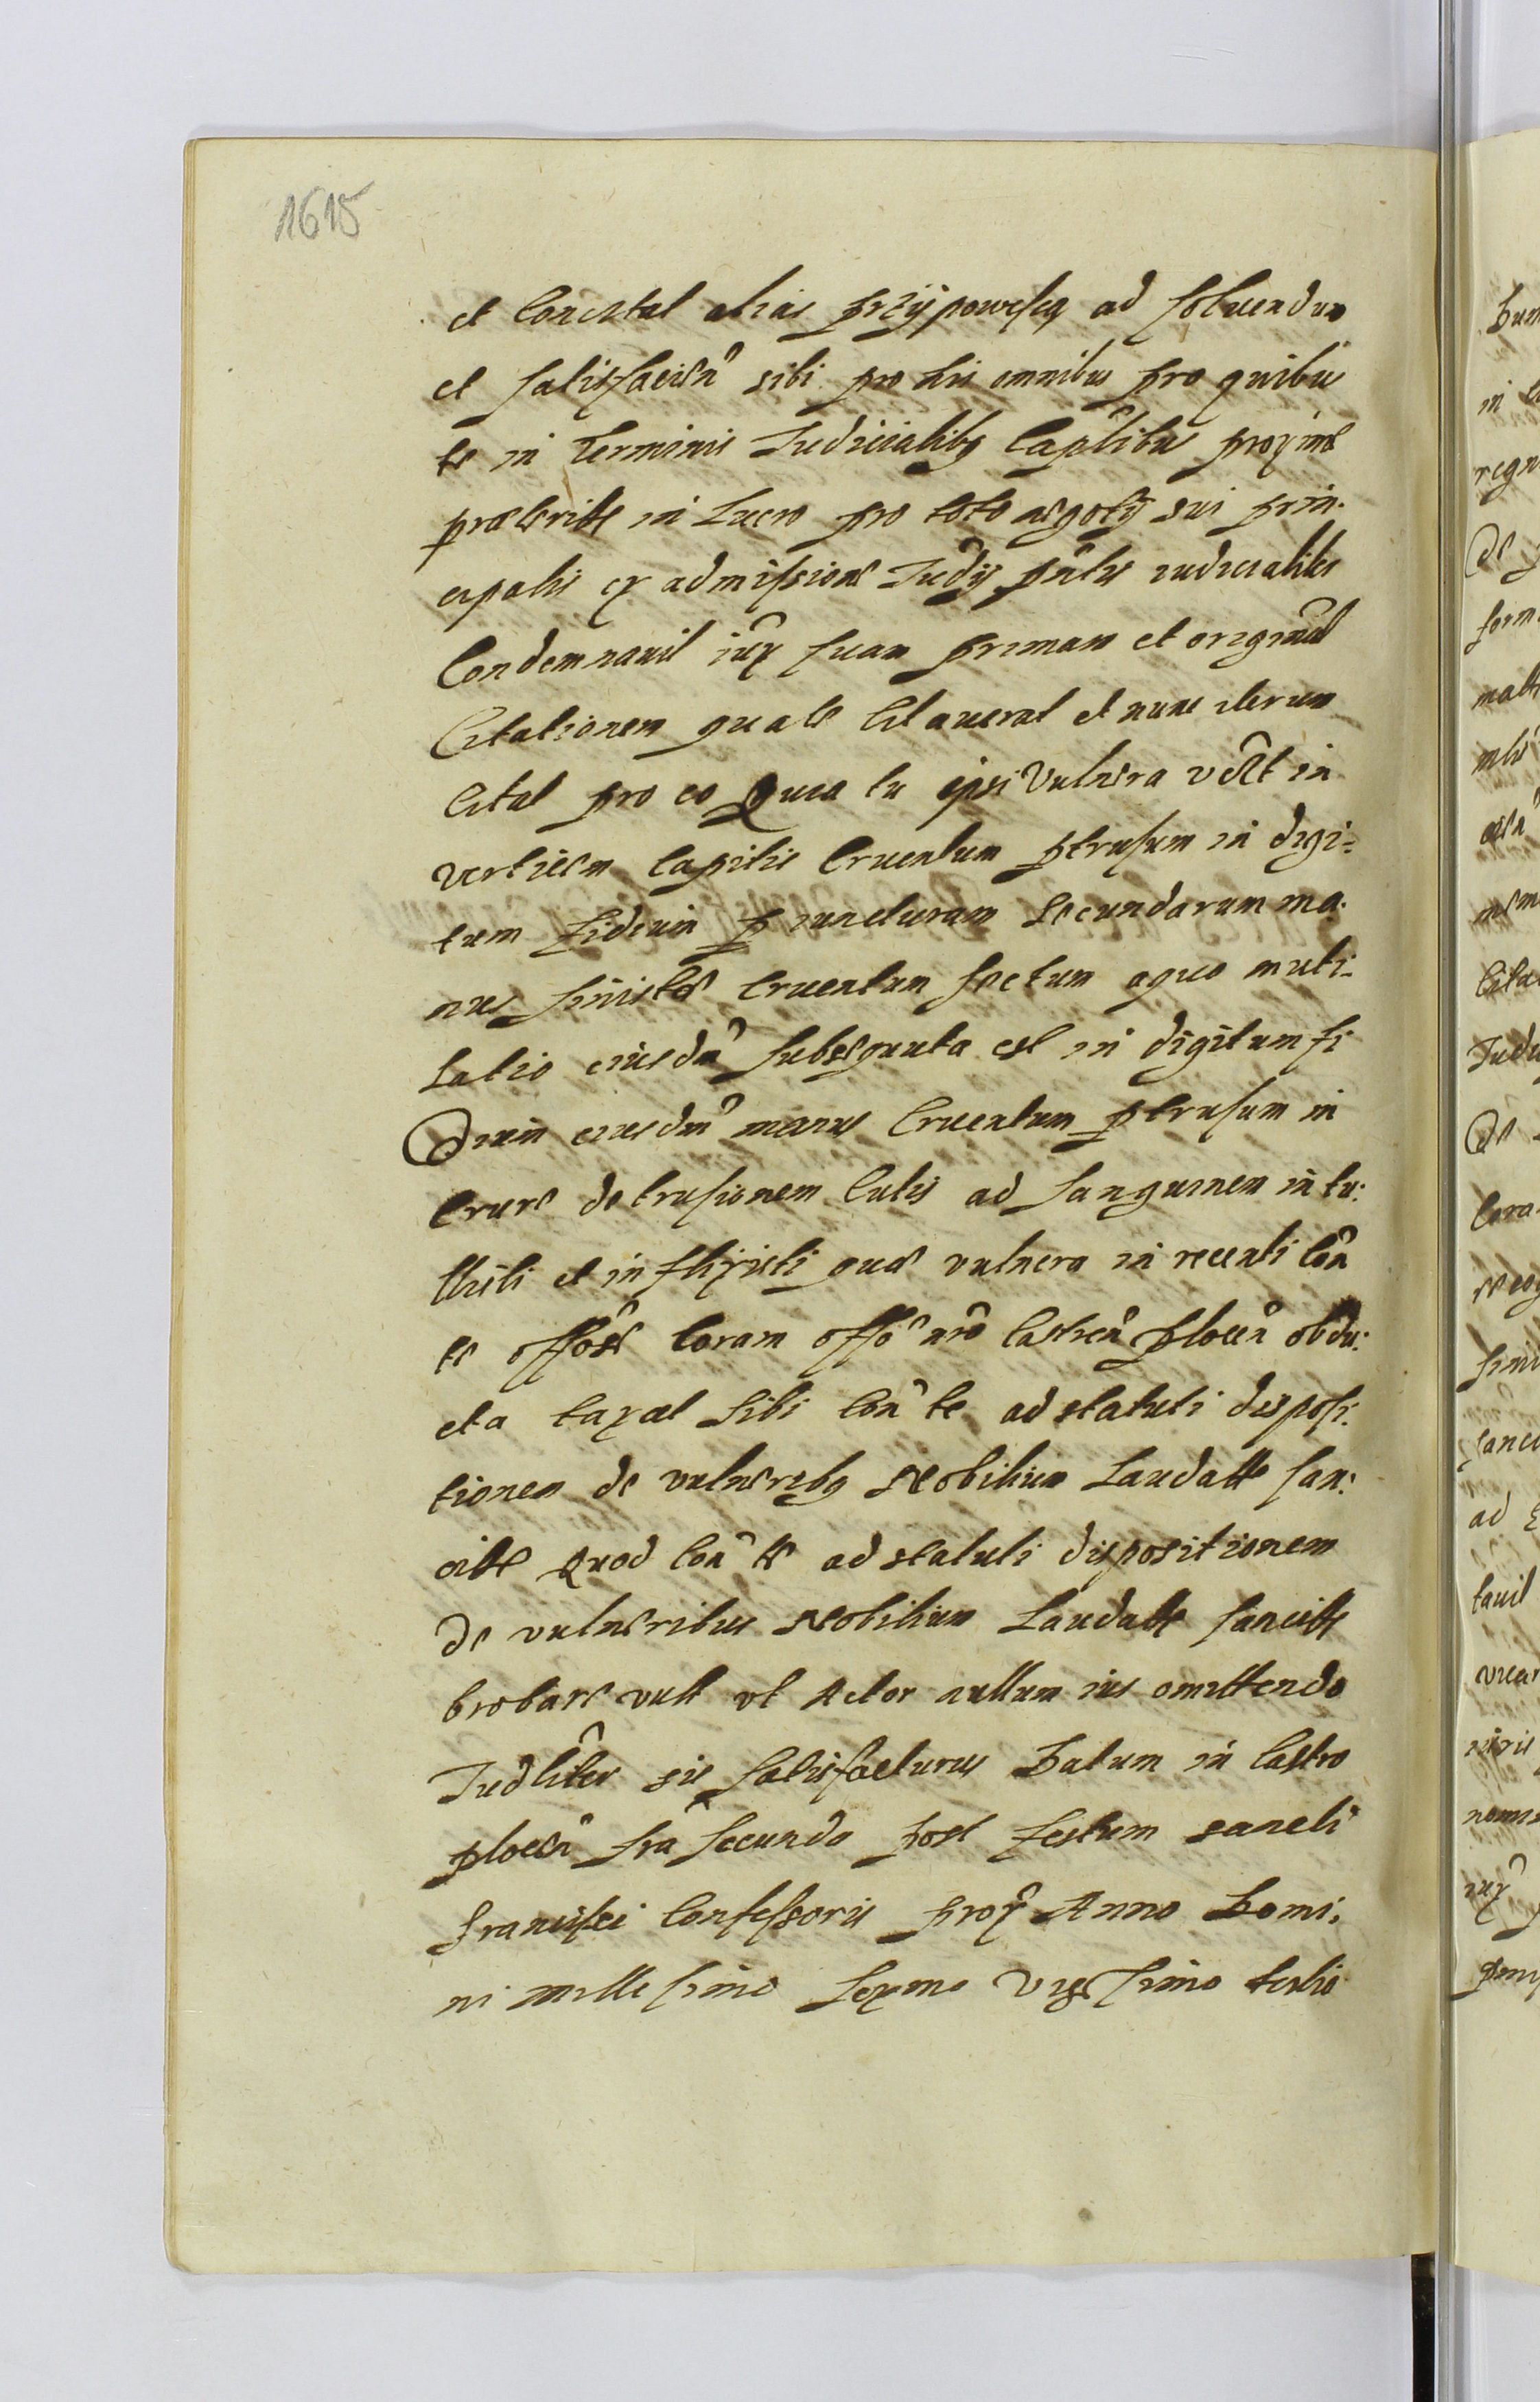 1615
et Concitat alias przÿpowesca ad soluendum
et satisfacien̂ sibi pro his omnibus pro quibus
te in Terminis Judicialibꝫ Cap̂libus proxime
præteritis in Lucro pro toto negotÿ sui prin-
cipalis ex admissione Judÿ p̂ntis iudicialiter
Condemnauit iux̂ suam primam et originâl
Citationem qua te Citauerat et nunc iterum
Citat pro eo Quia tu ipsi Vulnera vdlt in
verticem Capitis Cruentum ptrusum in digi-
tum fidium p iuncturam Secundarum ma-
nus sinistræ Cruentum sectum a quo muti-
Latio eiusdm̂ Subsequuta est in digitum fi
Dium eiusdm̂ manus Cruentum ptrusum in
Crure detrusionem Cutis ad Sanguinem intu-
listi et inflixisti quæ vulnera in recenti Con̂
te Coram offo n̂ro Castren̂ plocen̂ obdu-
cta taxat Sibi Con̂ te ad statuti disposi-
tionem de vulneribꝫ Nobilium Laudatte san-
citte Quod Con̂ te ad statuti dispositionem
de vulneribus Nobilium Laudatte sancitte
probare vult vt Actor nullum ius omittendo
Judl̂iter sis satisfacturus Datum in Castro
plocen̂ fr̂a Secunda post festum sancti
Francisci Confessoris prox̂ Anno Domi-
ni millesimo Sexmo Vigesimo tertio